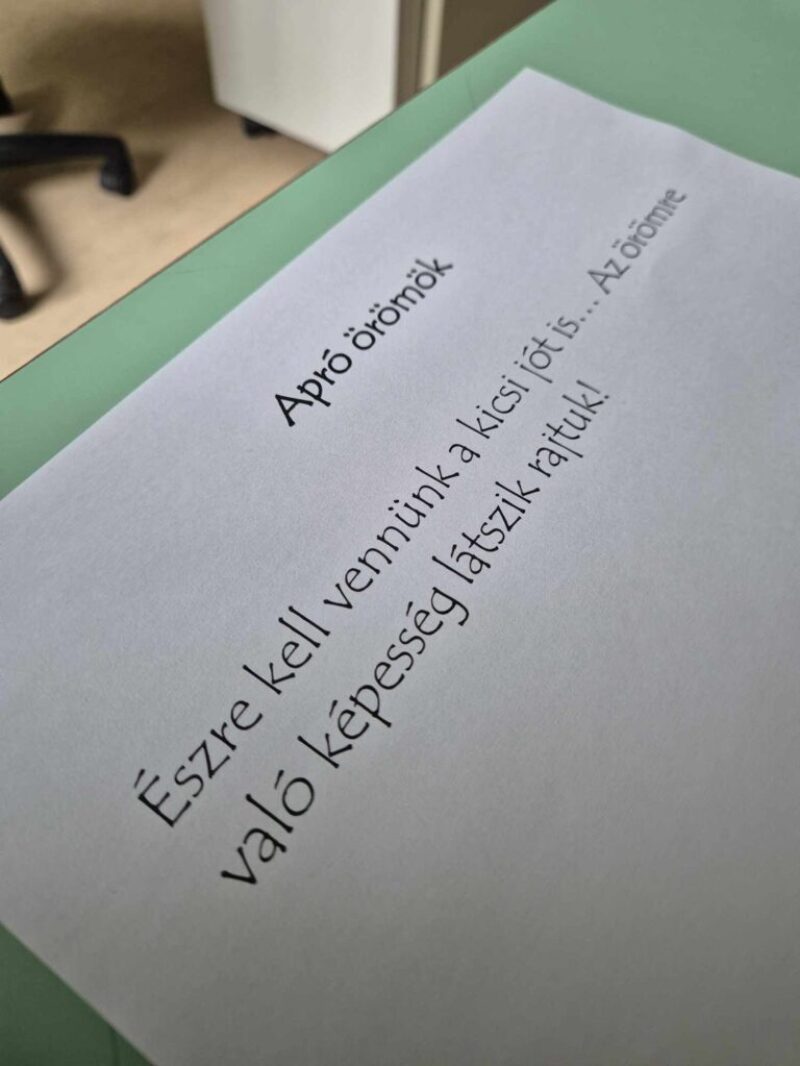 Apró örömök
Észre kell vennünk a kicsi jót is... Az örömre
való képesség látszik rajtuk!